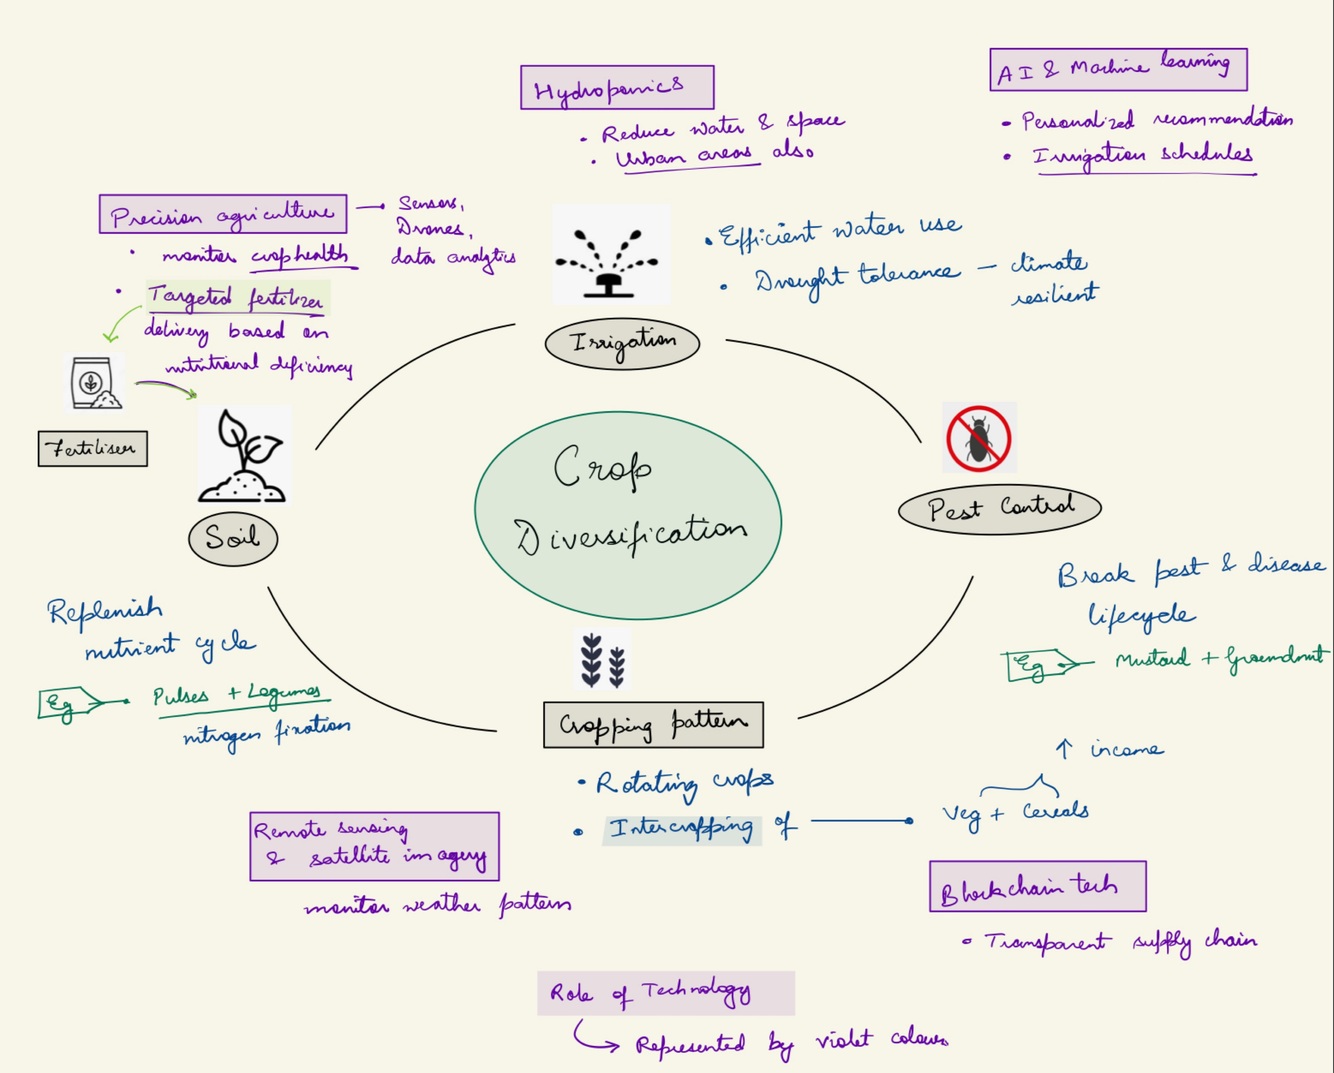 Hydroponics
• Reduce water & space
• Urban areas also
AI & Machine learning
• Personalized recommendation
• Irrigation schedules
Precision agriculture
Sensors,
Drones,
data analytics
• monitor crop health
• Targeted fertilizer
delivery based on
nutritional deficiency
Fertiliser
• Efficient water use
• Drought tolerance – climate
resilient
Irrigation
Crop
Diversification
Soil
Pest Control
Replenish
nutrient cycle
Eg
Pulses + Legumes
nitrogen fixation
Break pest & disease
lifecycle
Eg
Mustard + Groundnut
Cropping pattern
• Rotating crops
• Intercropping of
↑ income
Veg + Cereals
Remote sensing
& satellite imagery
monitor weather pattern
Blockchain tech
• Transparent supply chain
Role of Technology
Represented by violet colour